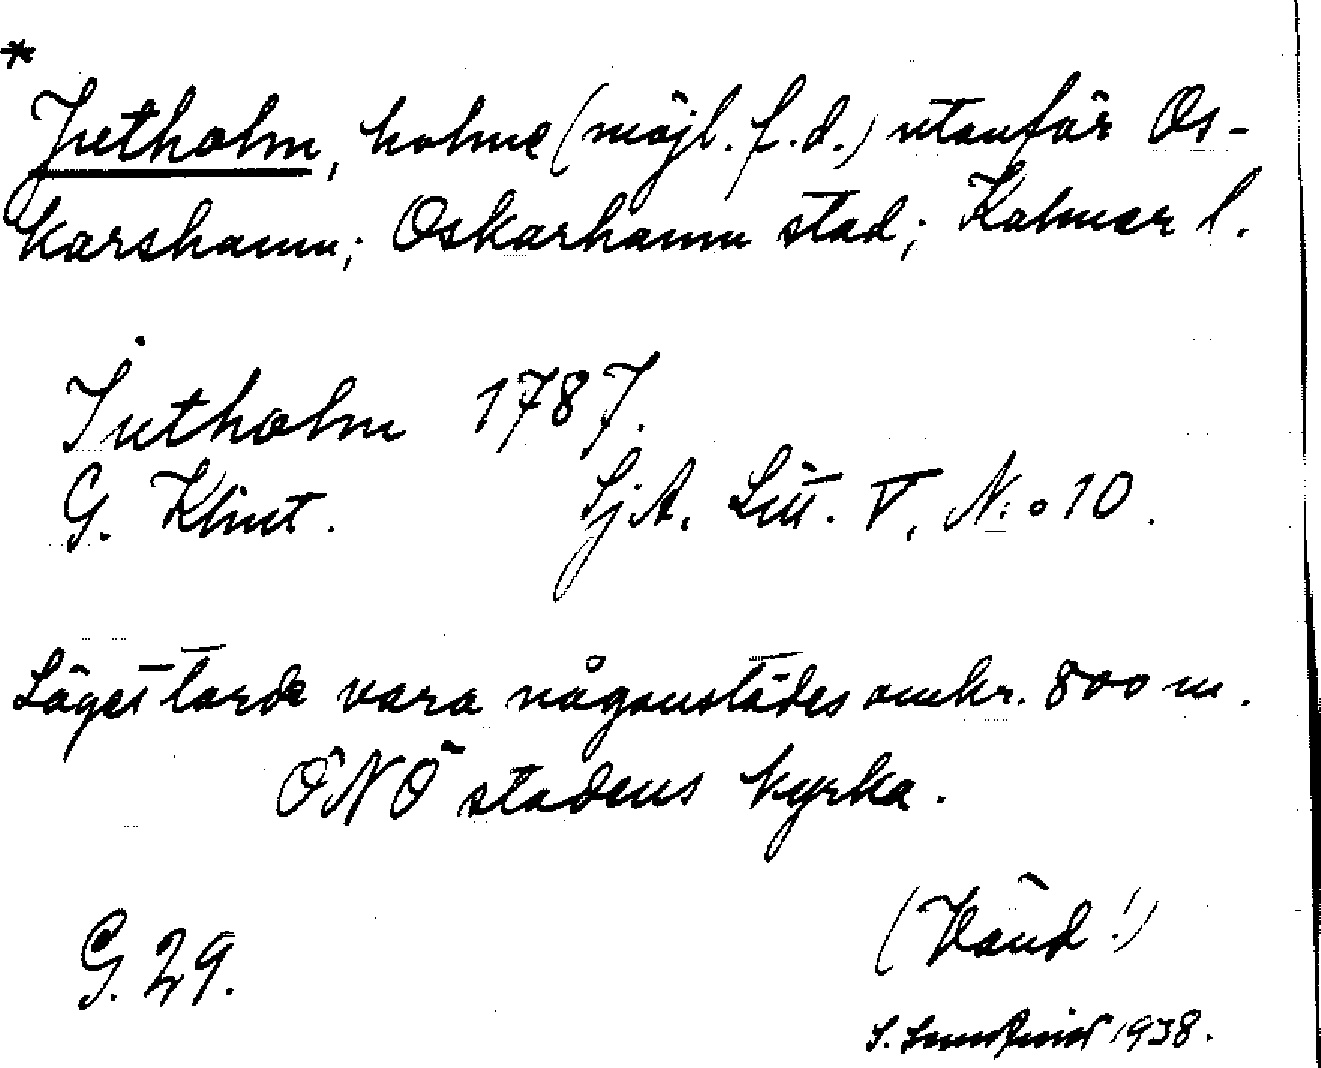 *
Jutholm, holme (möjl. f.d.) utanför Os-
karshamn; Oskarhamn stad; Kalmar l.
Jutholm 1787.
G. Klint. SjA. Litt. V. N:o 10.
Läget torde vara någonstädes omkr. 800 m.
ÖNÖ stadens kyrka.
(Vänd!)
G. 29.
S. 1938.